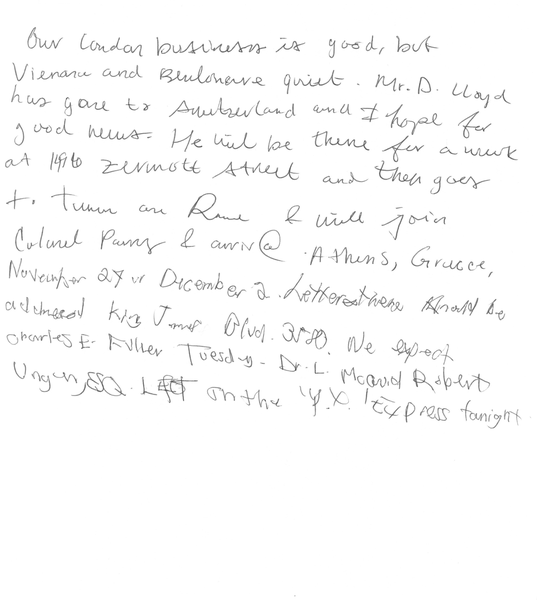 Our London business is good, but
Vienana and Benlonerve quiet. Mr. D. Lloyd
has gone to Switzerland and I hope for
good news. He will be there for a week
at 1496 Zermott Street and then goes
to Turin an Rome & will join
Colonel Parry & arriv@ Athens, Greece,
November 27 or December 2. Letters there should be
adressed King James Blvd. 3580. We expect
Charles E. Fuller Tuesday. Dr. L. McQuid Robert
Unger, ESQ. Left on the 'Y.X.' Express tonight